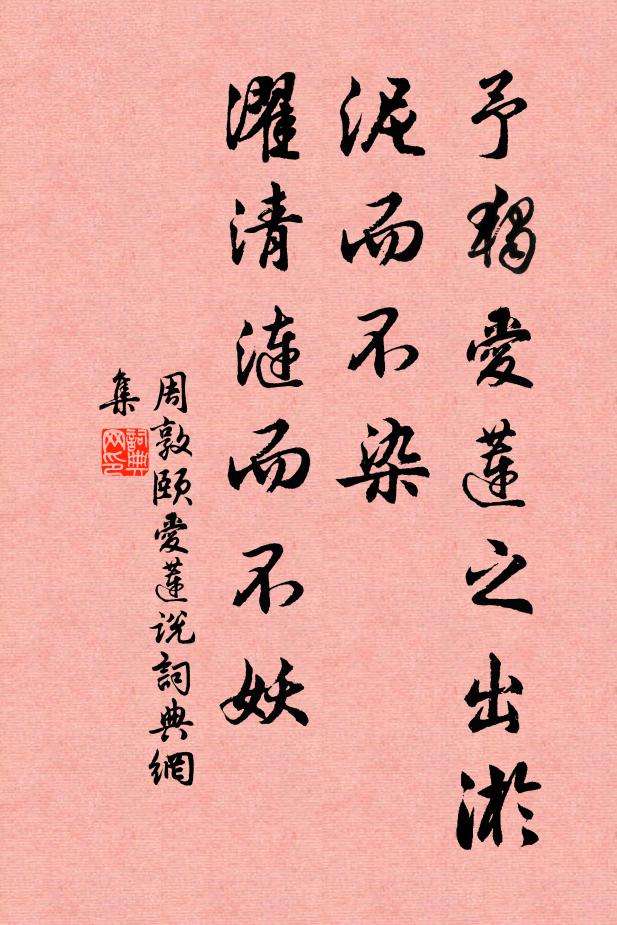 予獨愛蓮之出淤
泥而不染
濯清漣而不妖
周敦頤愛蓮說詞典網
集
詞典
网印